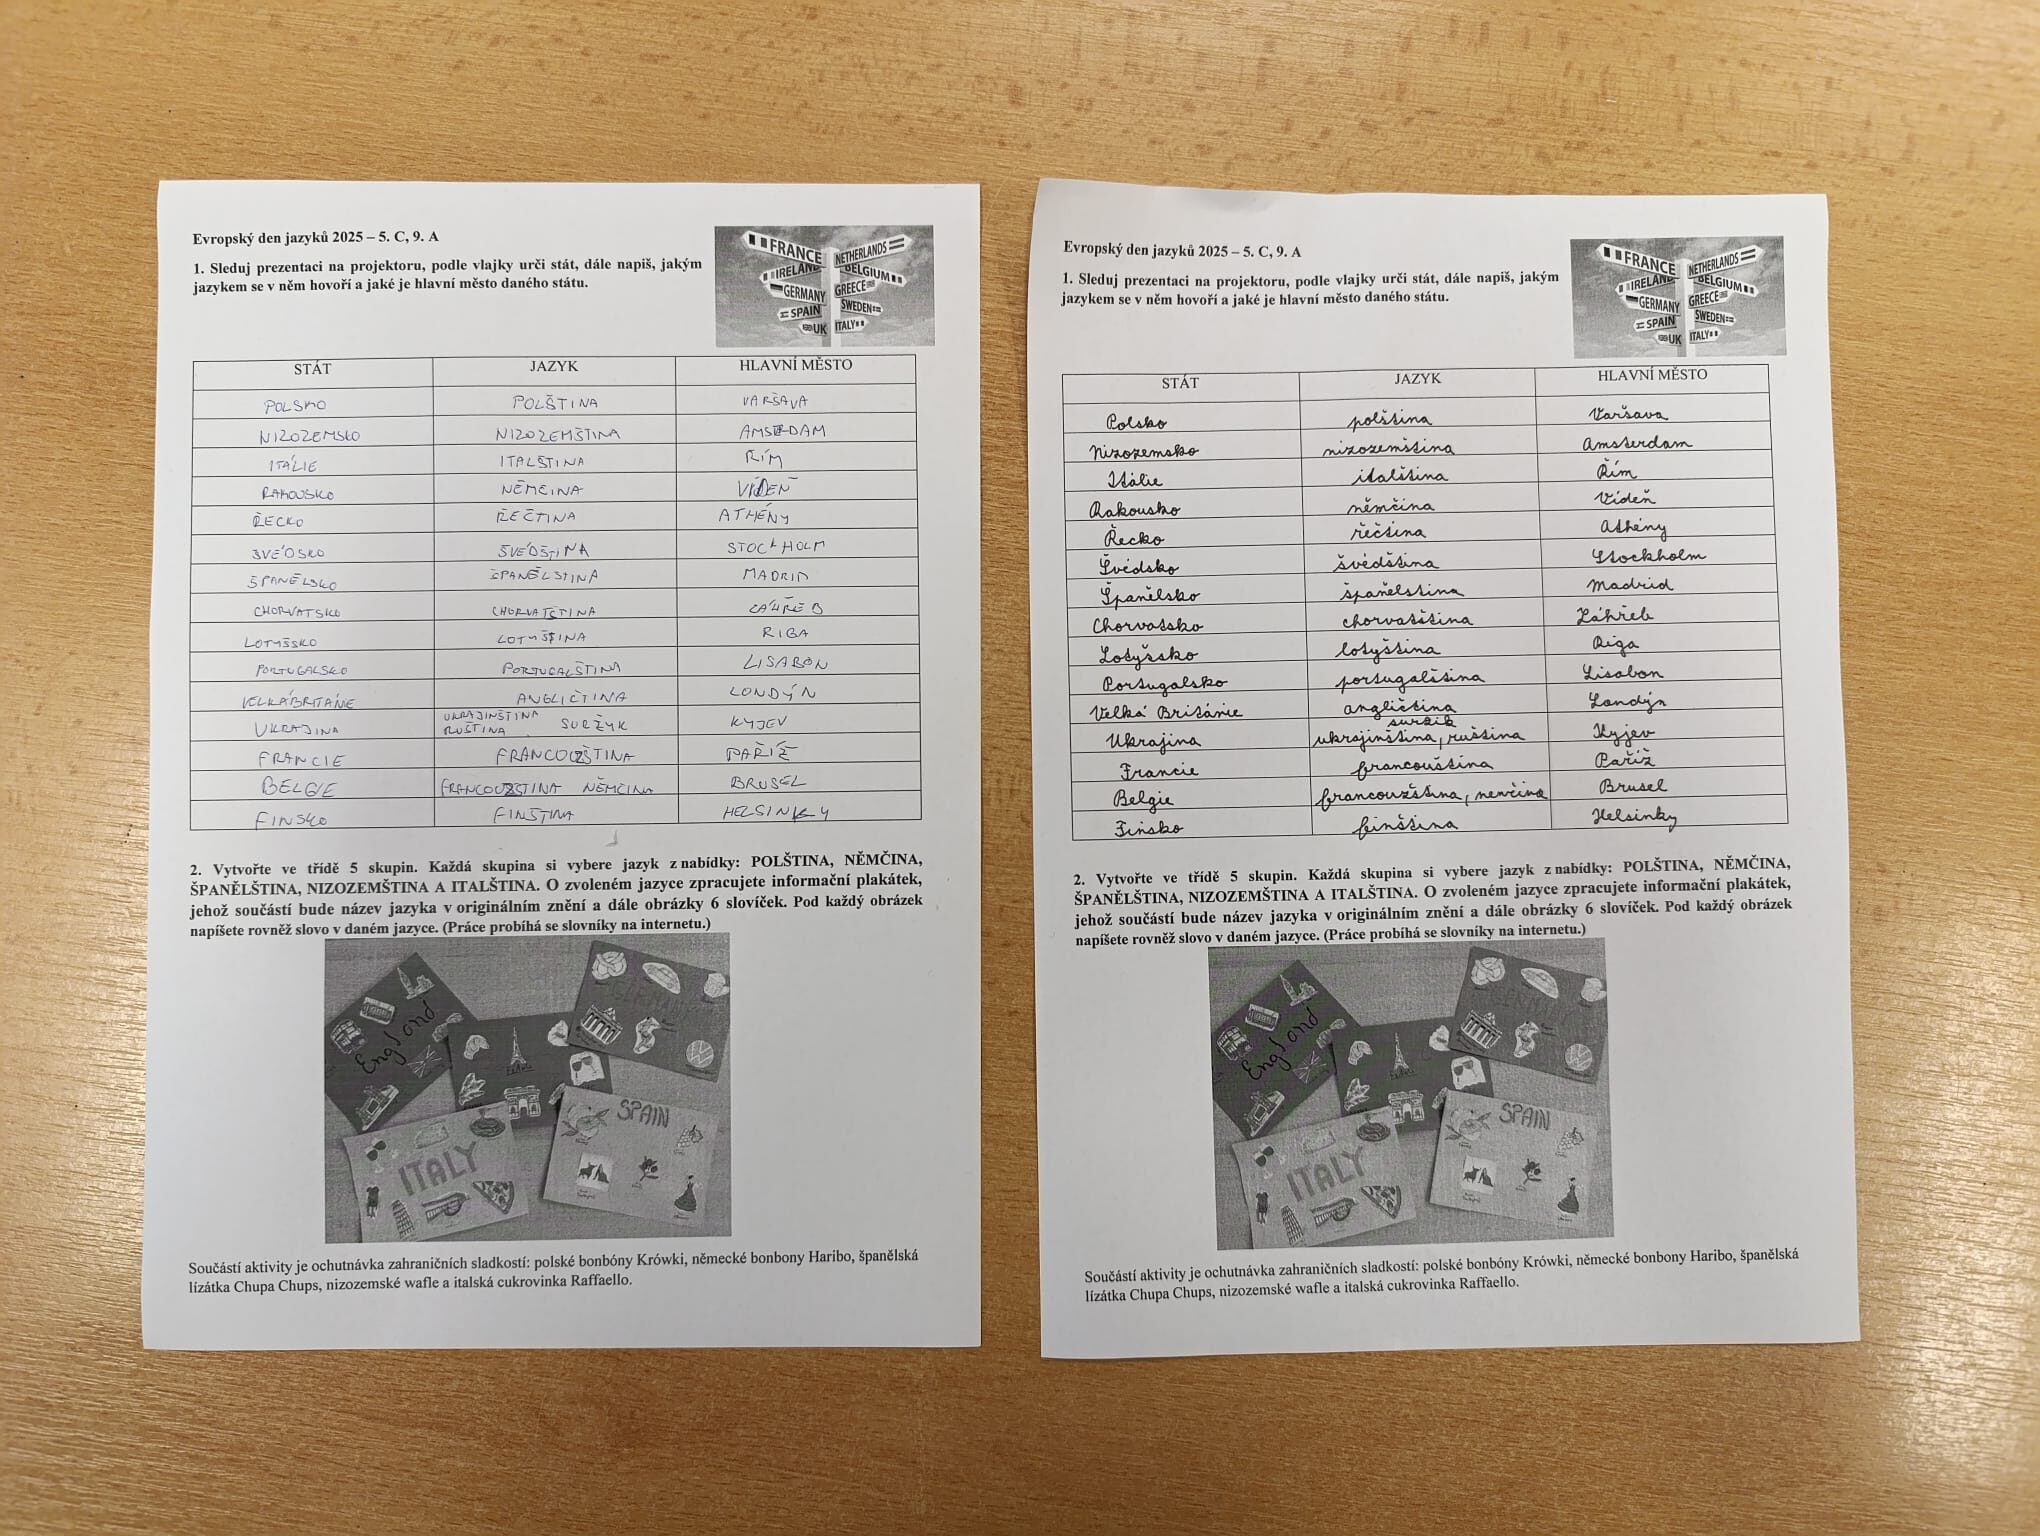 Evropský den jazyků 2025 – 5. C, 9. A
1. Sleduj prezentaci na projektoru, podle vlajky urči stát, dále napiš, jakým
jazykem se v něm hovoří a jaké je hlavní město daného státu.
FRANCE
NETHERLANDS
IRELAND
BELGIUM
GERMANY
GREECE
SPAIN
SWEDEN
UK
ITALY
STÁT JAZYK HLAVNÍ MĚSTO
POLSKO POLŠTINA VARŠAVA
NIZOZEMSKO NIZOZEMŠTINA AMSTRDAM
ITÁLIE ITALŠTINA ŘÍM
RAKOUSKO NĚMČINA VÍDEŇ
ŘECKO ŘEČTINA ATHÉNY
ŠVÉDSKO ŠVÉDŠTINA STOCKHOLM
ŠPANĚLSKO ŠPANĚLŠTINA MADRID
CHORVATSKO CHORVATŠTINA ZÁHŘEB
LOTYŠSKO LOTYŠTINA RIGA
PORTUGALSKO PORTUGALŠTINA LISABON
VELKÁ BRITÁNIE ANGLIČTINA LONDÝN
UKRAJINA UKRAJINŠTINA RUŠTINA SURŽYK KYJEV
FRANCIE FRANCOUZŠTINA PAŘÍŽ
BELGIE FRANCOUZŠTINA NĚMČINA BRUSEL
FINSKO FINŠTINA HELSINKY
2. Vytvořte ve třídě 5 skupin. Každá skupina si vybere jazyk z nabídky: POLŠTINA, NĚMČINA,
ŠPANĚLŠTINA, NIZOZEMŠTINA A ITALŠTINA. O zvoleném jazyce zpracujete informační plakátek,
jehož součástí bude název jazyka v originálním znění a dále obrázky 6 slovíček. Pod každý obrázek
napíšete rovněž slovo v daném jazyce. (Práce probíhá se slovníky na internetu.)
England
GERMANY
SPAIN
ITALY
Součástí aktivity je ochutnávka zahraničních sladkostí: polské bonbóny Krówki, německé bonbony Haribo, španělská
lízátka Chupa Chups, nizozemské wafle a italská cukrovinka Raffaello.
Evropský den jazyků 2025 – 5. C, 9. A
1. Sleduj prezentaci na projektoru, podle vlajky urči stát, dále napiš, jakým
jazykem se v něm hovoří a jaké je hlavní město daného státu.
FRANCE
NETHERLANDS
IRELAND
BELGIUM
GERMANY
GREECE
SPAIN
SWEDEN
UK
ITALY
STÁT JAZYK HLAVNÍ MĚSTO
Polsko polština Varšava
Nizozemsko nizozemština Amsterdam
Itálie italština Řím
Rakousko němčina Vídeň
Řecko řečtina Athény
Švédsko švédština Stockholm
Španělsko španělština Madrid
Chorvatsko chorvatština Záhřeb
Lotyšsko lotyština Riga
Portugalsko portugalština Lisabon
Velká Británie angličtina Londýn
Ukrajina ukrajinština, ruština suržik Kyjev
Francie francouština Paříž
Belgie francouzština, nemčina Brusel
Finsko finština Helsinky
2. Vytvořte ve třídě 5 skupin. Každá skupina si vybere jazyk z nabídky: POLŠTINA, NĚMČINA,
ŠPANĚLŠTINA, NIZOZEMŠTINA A ITALŠTINA. O zvoleném jazyce zpracujete informační plakátek,
jehož součástí bude název jazyka v originálním znění a dále obrázky 6 slovíček. Pod každý obrázek
napíšete rovněž slovo v daném jazyce. (Práce probíhá se slovníky na internetu.)
England
GERMANY
SPAIN
ITALY
Součástí aktivity je ochutnávka zahraničních sladkostí: polské bonbóny Krówki, německé bonbony Haribo, španělská
lízátka Chupa Chups, nizozemské wafle a italská cukrovinka Raffaello.